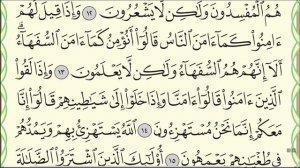 هُمُ ٱلْمُفْسِدُونَ وَلَٰكِن لَّا يَشْعُرُونَ ١٢ وَإِذَا قِيلَ لَهُمْ
ءَامِنُوا۟ كَمَآ ءَامَنَ ٱلنَّاسُ قَالُوٓا۟ أَنُؤْمِنُ كَمَآ ءَامَنَ ٱلسُّفَهَآءُ ۗ
أَلَآ إِنَّهُمْ هُمُ ٱلسُّفَهَآءُ وَلَٰكِن لَّا يَعْلَمُونَ ١٣ وَإِذَا لَقُوا۟
ٱلَّذِينَ ءَامَنُوا۟ قَالُوٓا۟ ءَامَنَّا وَإِذَا خَلَوْا۟ إِلَىٰ شَيَٰطِينِهِمْ قَالُوٓا۟ إِنَّا
مَعَكُمْ إِنَّمَا نَحْنُ مُسْتَهْزِءُونَ ١٤ ٱللَّهُ يَسْتَهْزِئُ بِهِمْ وَيَمُدُّهُمْ
فِى طُغْيَٰنِهِمْ يَعْمَهُونَ ١٥ أُو۟لَٰٓئِكَ ٱلَّذِينَ ٱشْتَرَوُا۟ ٱلضَّلَٰلَةَ